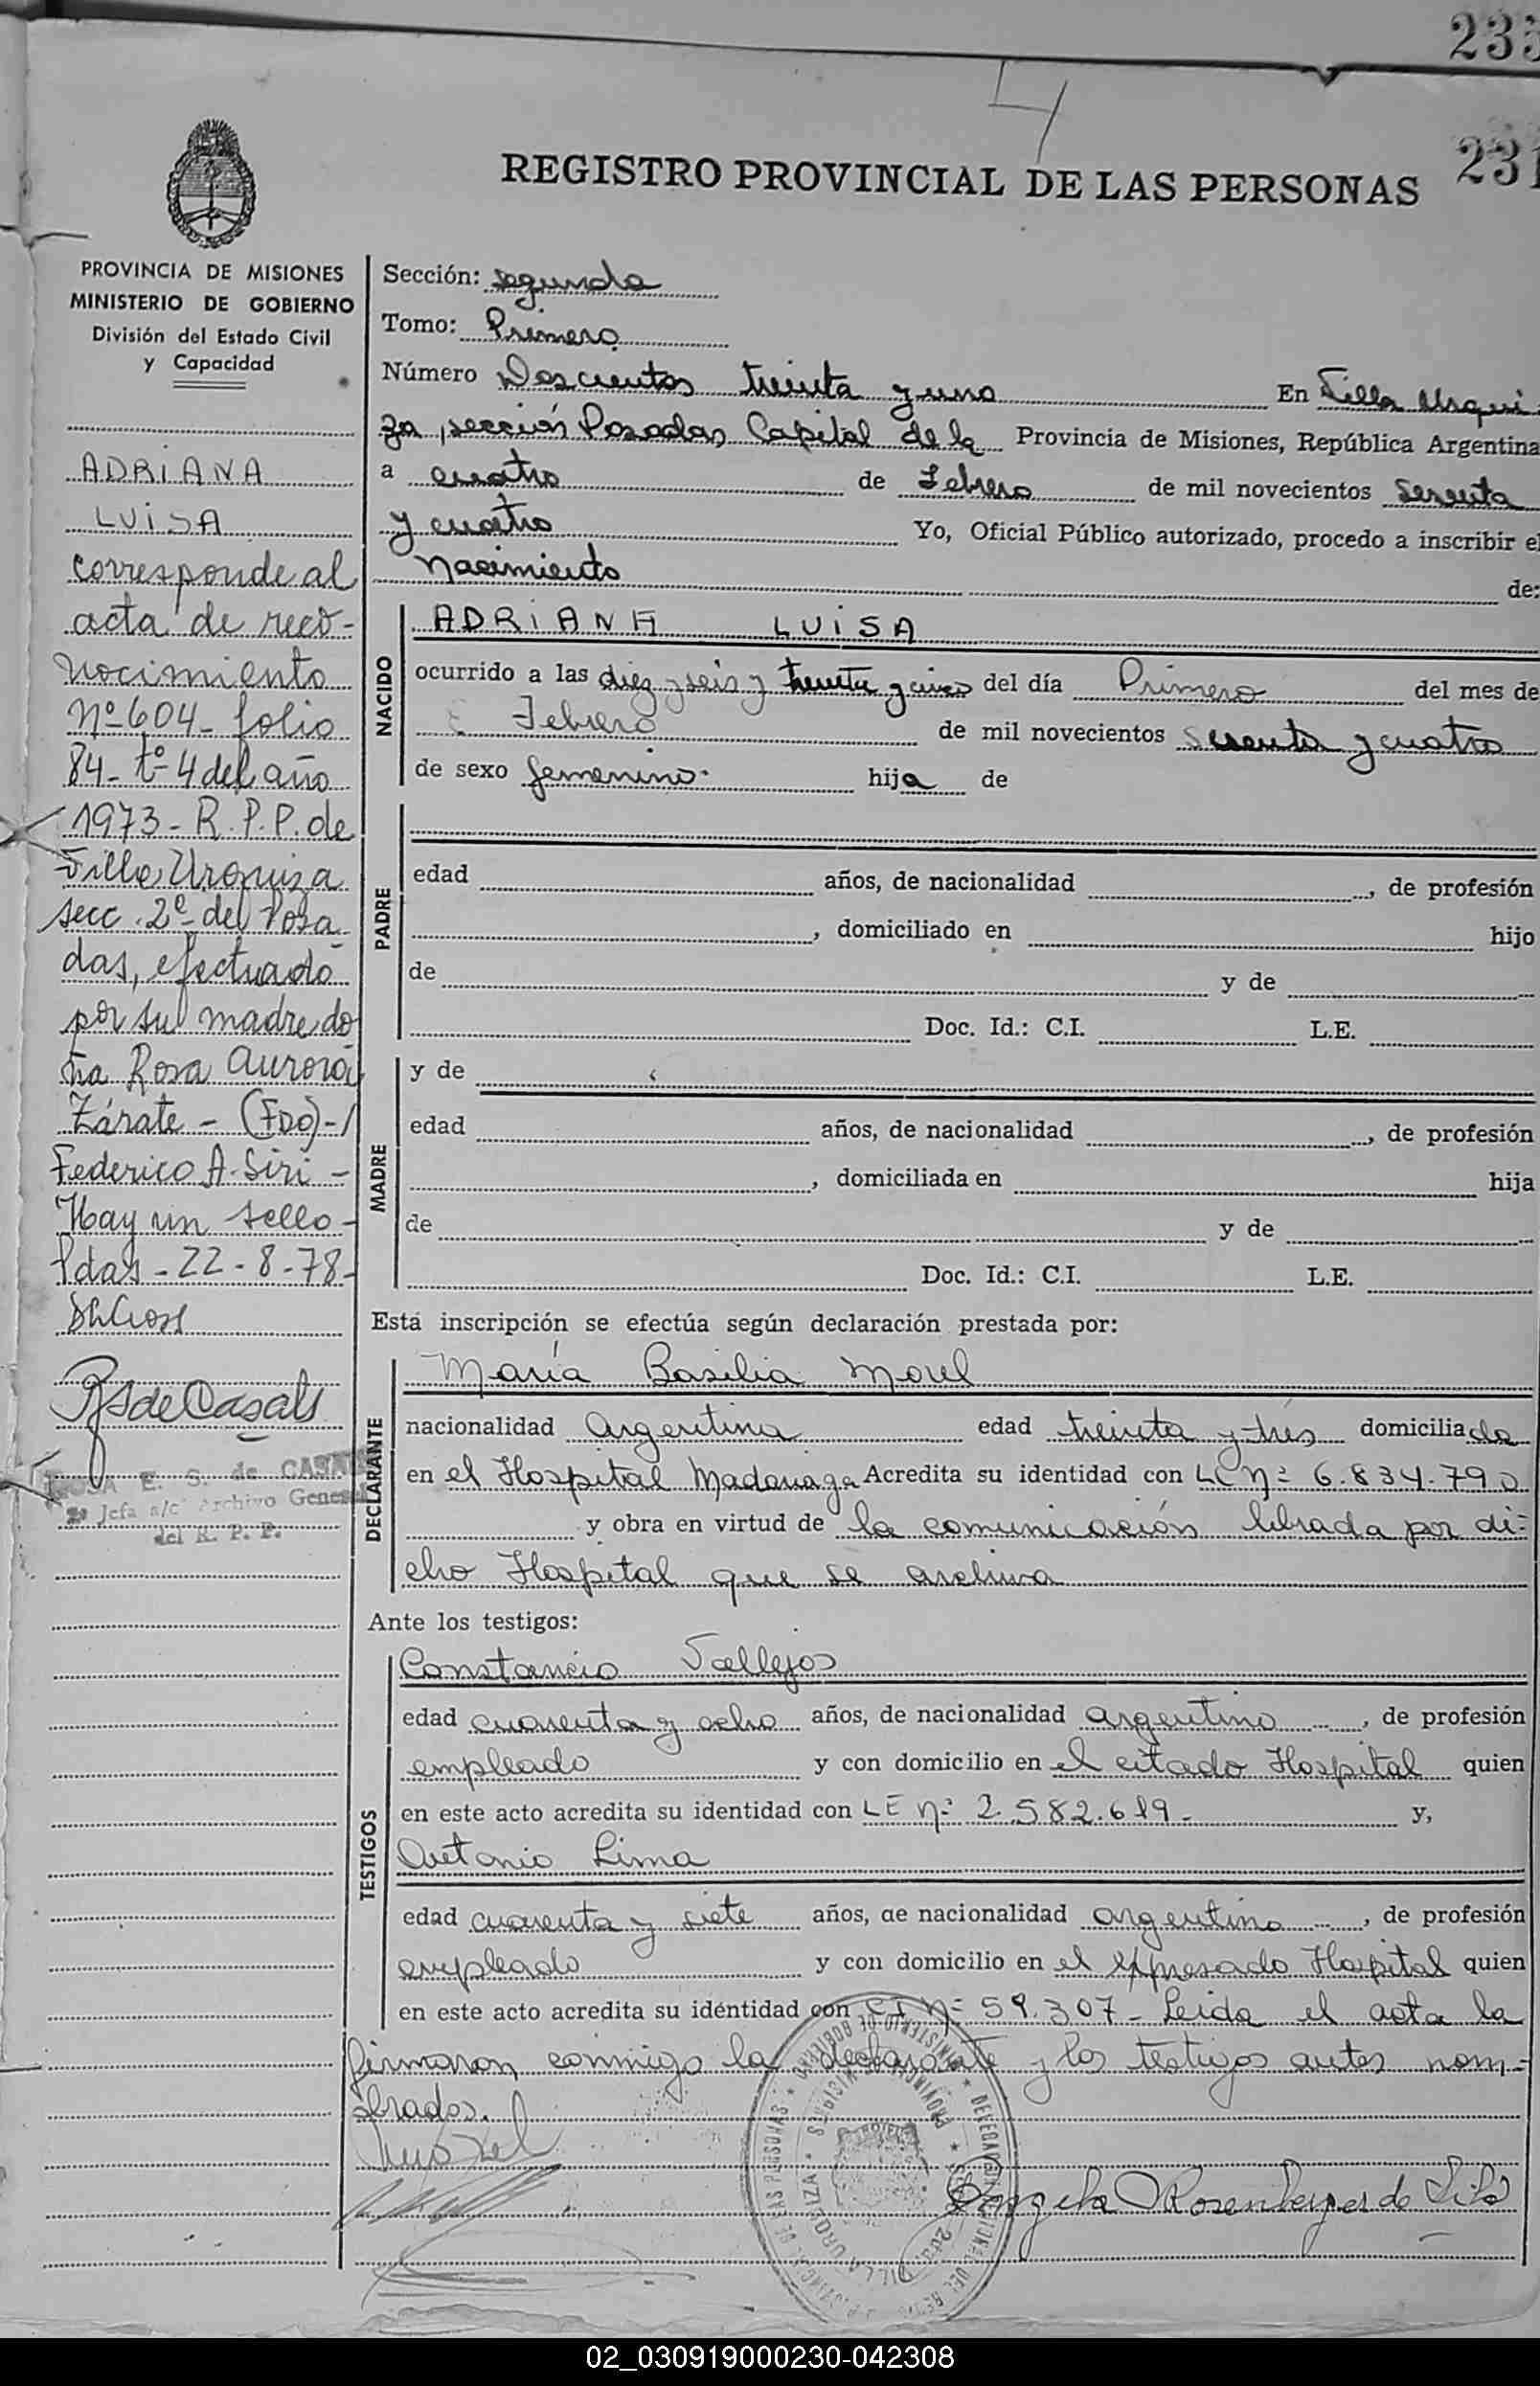 235
4
231
REGISTRO PROVINCIAL DE LAS PERSONAS
PROVINCIA DE MISIONES
MINISTERIO DE GOBIERNO
División del Estado Civil
y Capacidad
ADRIANA
LUISA
corresponde al
acta de reco-
nocimiento
Nº 604 - folio
84 - tº 4 del año
1973 - R. P. P. de
Villa Urquiza
secc. 2ª del Posa
das, efectuado
por su madre do
ña Rosa Aurora
Zárate - (FDO) - /
Federico A. Siri -
Hay un sello -
Pdas - 22 - 8 - 78 -
RS de Casals
ROSA E. S. de CASALS
2ª Jefa a/c Archivo General
del R. P. P.
Sección: segunda
Tomo: Primero
Número Doscientos treinta y uno En Villa Urqui
za, sección Posadas Capital de la Provincia de Misiones, República Argentina
a cuatro de Febrero de mil novecientos sesenta
y cuatro Yo, Oficial Público autorizado, procedo a inscribir el
nacimiento de:
NACIDO
ADRIANA LUISA
ocurrido a las diez y seis y treinta y cinco del día Primero del mes de
Febrero de mil novecientos sesenta y cuatro
de sexo femenino hija de
PADRE
edad años, de nacionalidad , de profesión
, domiciliado en hijo
de y de
Doc. Id.: C.I. L.E.
MADRE
y de
edad años, de nacionalidad , de profesión
, domiciliada en hija
de y de
Doc. Id.: C.I. L.E.
Esta inscripción se efectúa según declaración prestada por:
DECLARANTE
María Basilia Morel
nacionalidad argentina edad treinta y trés domiciliada
en el Hospital Madariaga Acredita su identidad con LC nº 6.834.790
y obra en virtud de la comunicación librada por di-
cho Hospital que se archiva
Ante los testigos:
TESTIGOS
Constancio Vallejos
edad cuarenta y ocho años, de nacionalidad argentino , de profesión
empleado y con domicilio en el citado Hospital quien
en este acto acredita su identidad con LE nº 2.582.619 - y,
Antonio Lima
edad cuarenta y siete años, de nacionalidad argentino , de profesión
empleado y con domicilio en el expresado Hospital quien
en este acto acredita su identidad con CI nº 59.307 - Leida el acta la
firmaron conmigo la declarante y los testigos antes nom-
brados.
Angela Rosenberger de
02_030919000230-042308